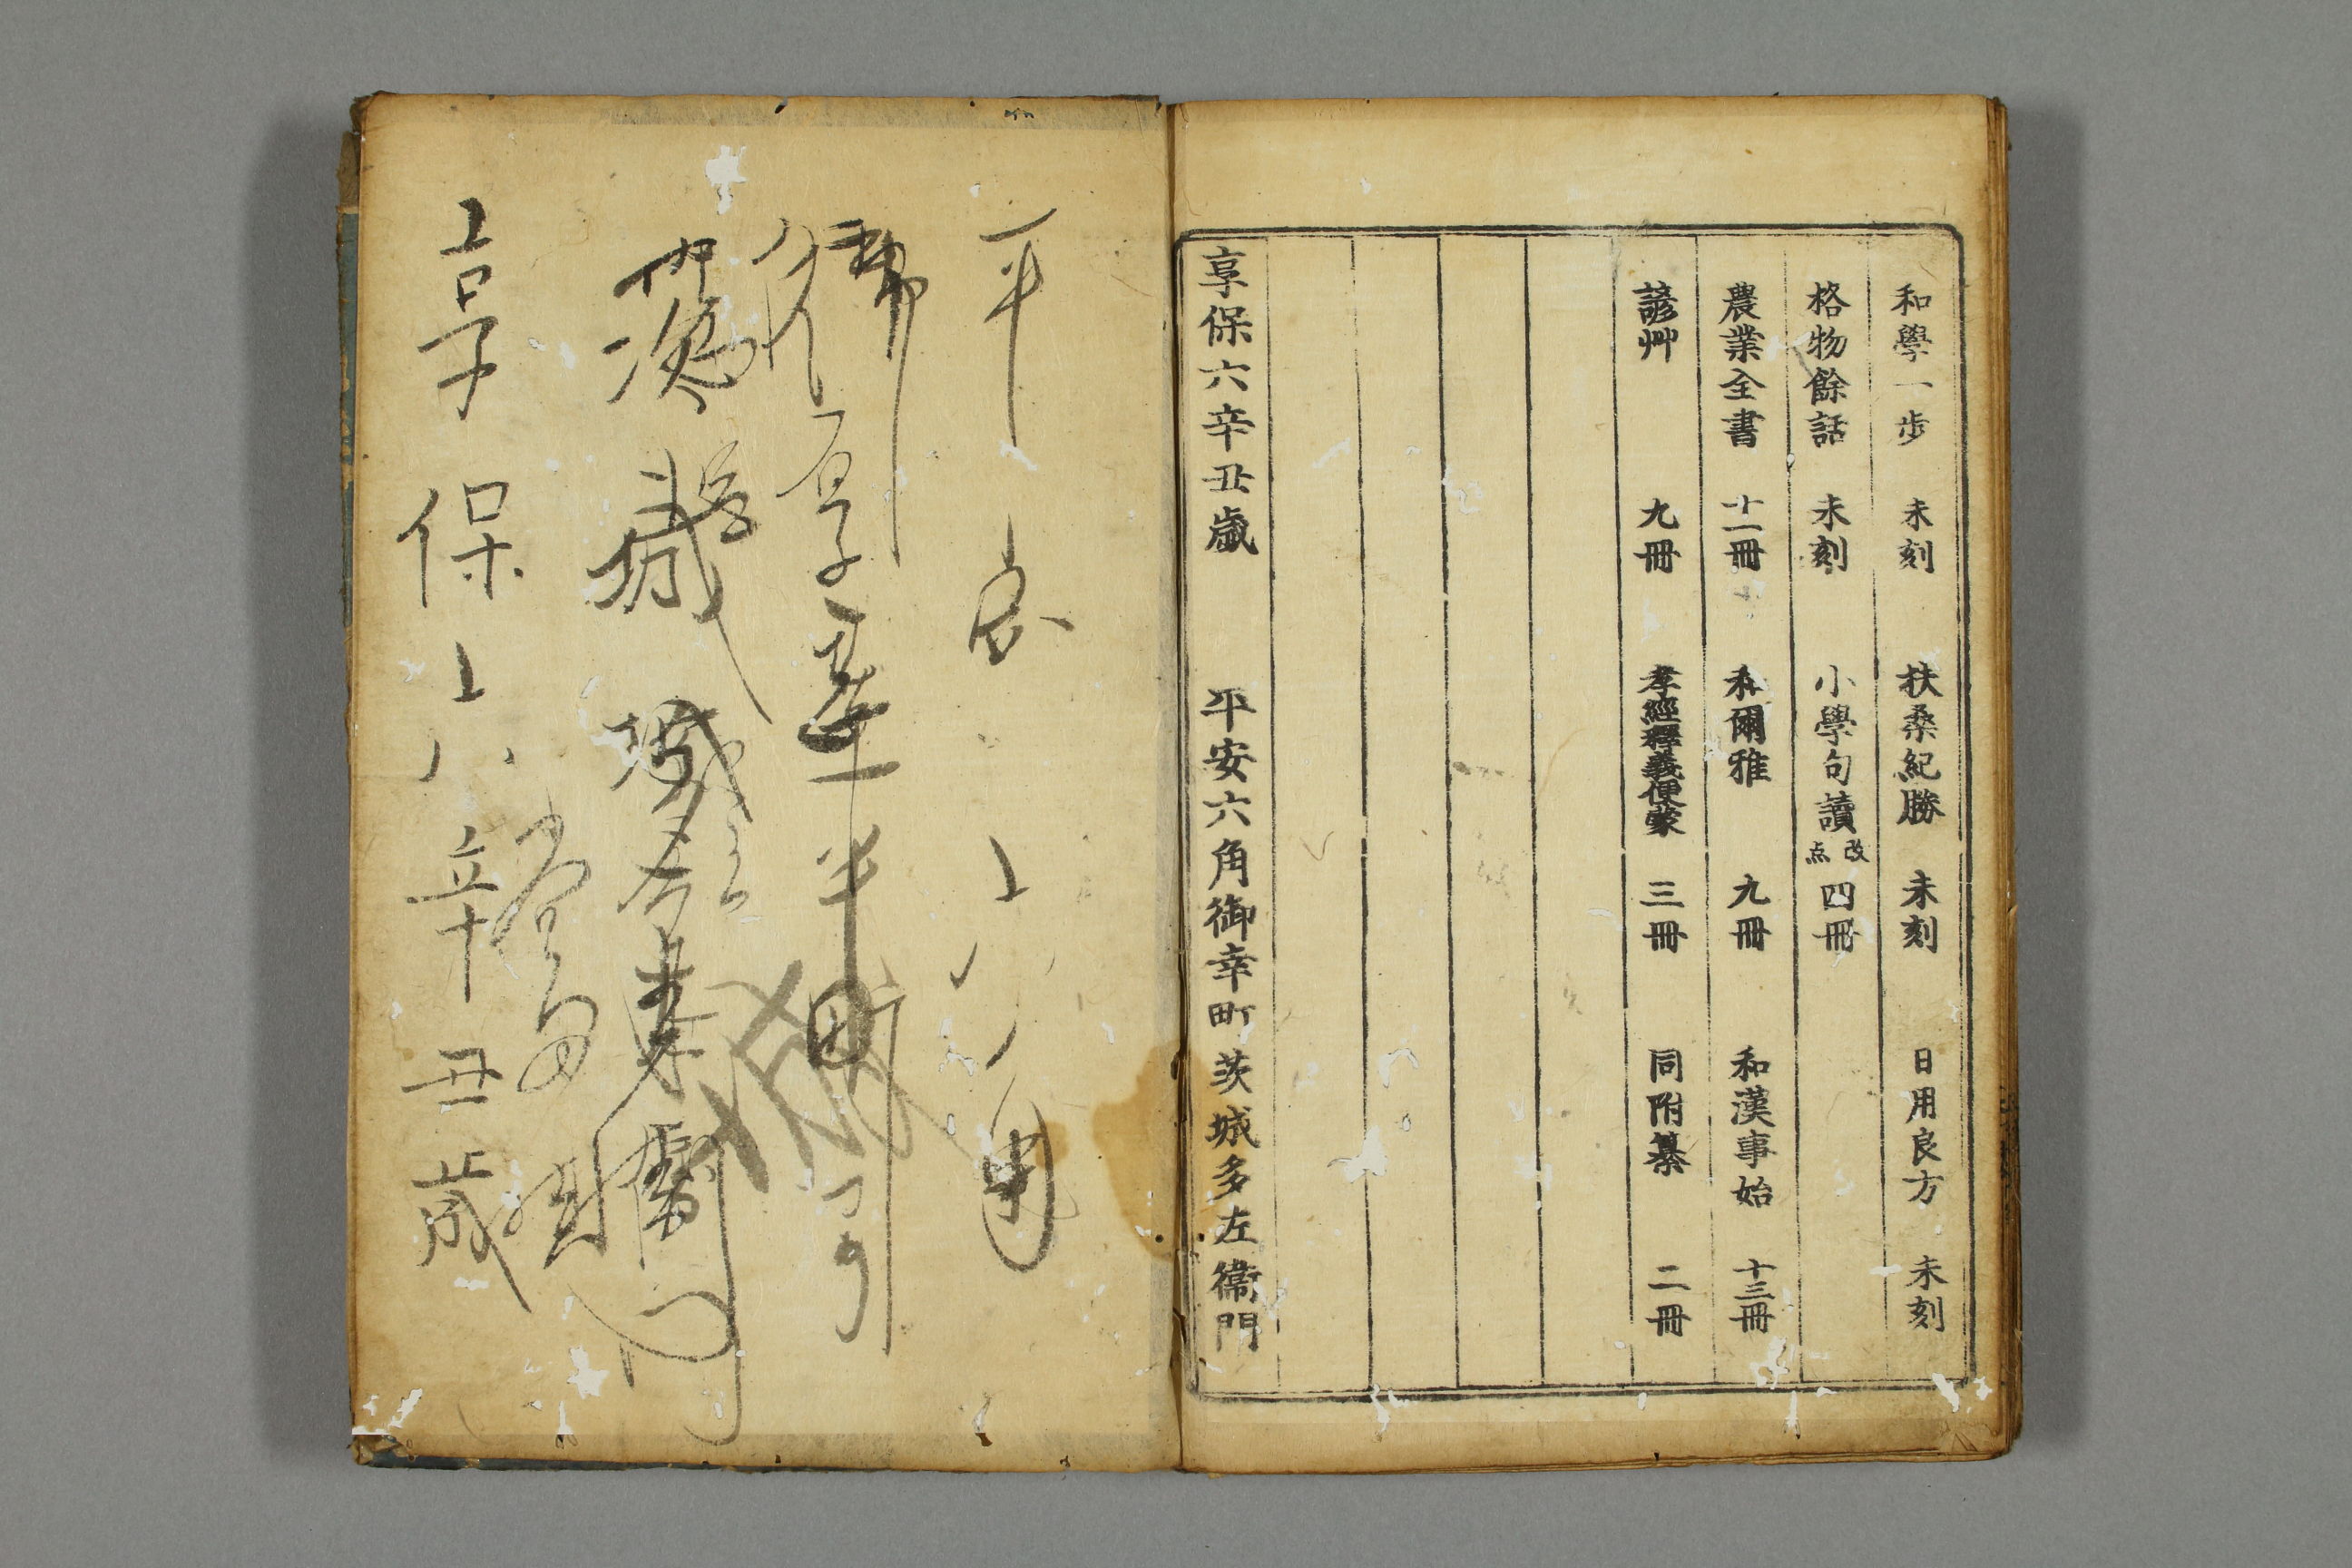 和學一歩 未刻 扶桑紀勝 未刻 日用良方 未刻
格物餘話 未刻 小學句讀 改点 四冊
農業全書 十一冊 和爾雅 九冊 和漢事始 十三冊
諺艸 九冊 孝經釋義便蒙 三冊 同附纂 二冊
享保六辛丑歲 平安六角御幸町 茨城多左衞門
平安六角
御幸町
茨城多左衞門
享保六辛丑歳